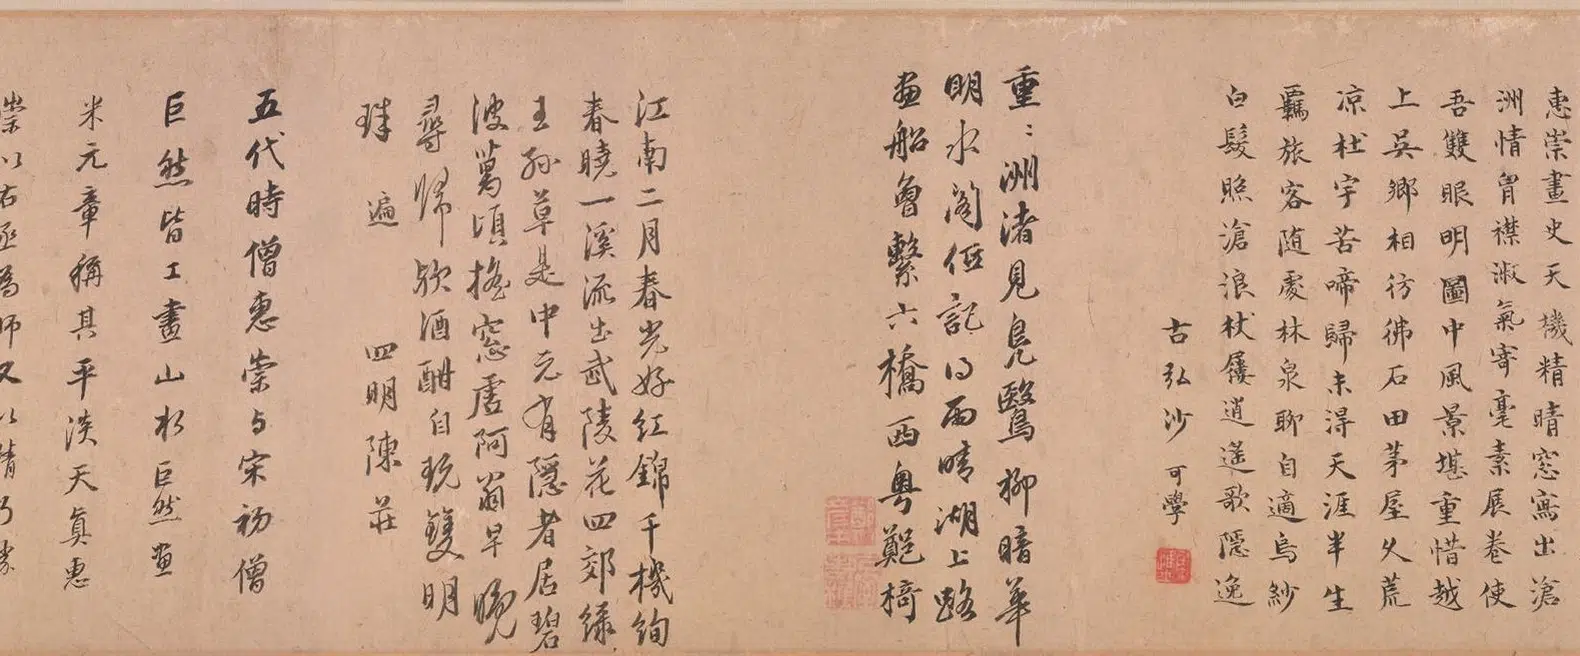 惠崇畫史天機精晴窓寫出滄
洲情胷襟淑氣寄毫素展卷使
吾雙眼明圖中風景堪重惜越
上吳鄉相彷彿石田茅屋久荒
凉杜宇苦啼歸未得天涯半生
羈旅客随處林泉聊自適烏紗
白髮照滄浪杖屨逍遥歌隱逸
古弘沙可學
重:洲渚見鳧鷖柳暗華
明水閣低記得西晴湖上路
畫船曾繫六橋西粤鄭椅
江南二月春光好紅錦千機絢
春曉一溪流出武陵花四郊緑
王孫草是中元有隱者居碧
波萬頃搖窓虛阿翁早晚
尋歸欤酒酣自玩雙明
珠 遍 四明陳莊
五代時僧惠崇与宋初僧
巨然皆工畫山水巨然畫
米元章稱其平淡天真惠
崇以右丞為師又以精巧